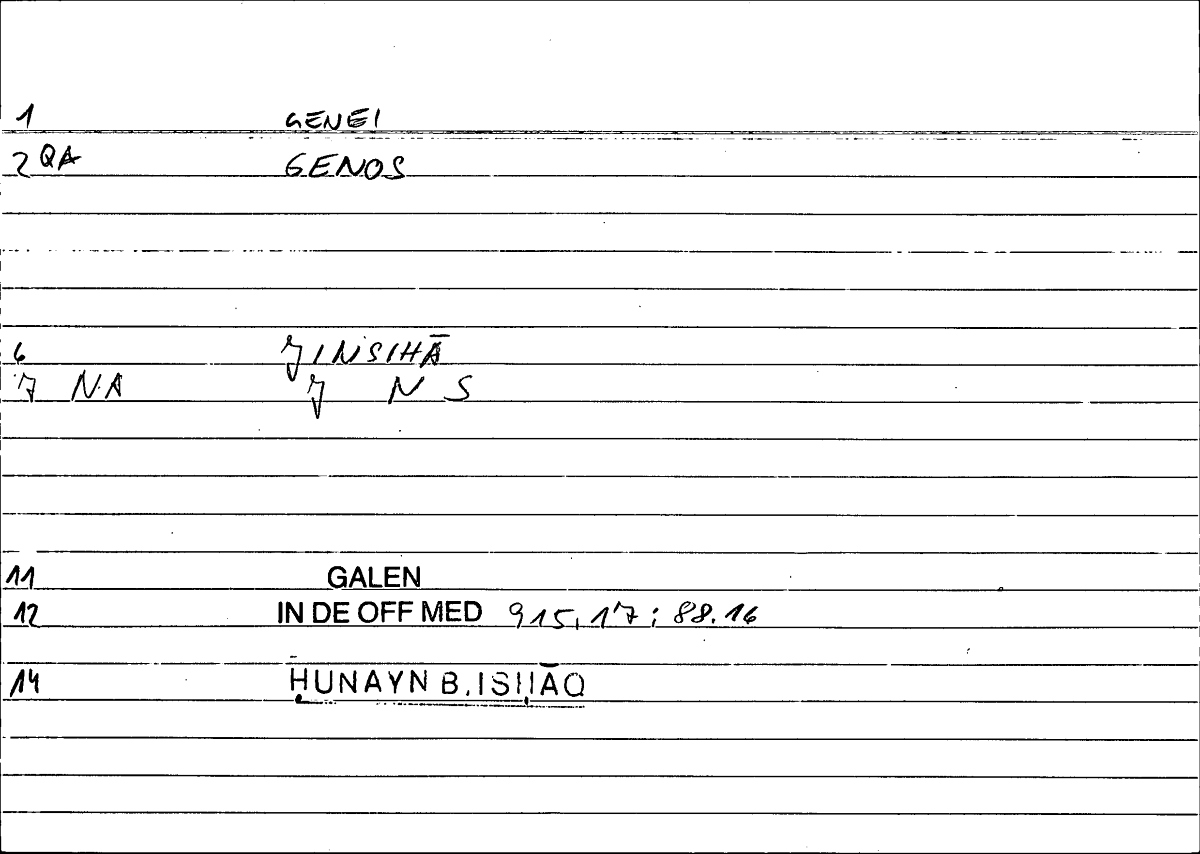 1 GENEI
2 QA GENOS
6 JINSIHĀ
7 NA J N S
11 GALEN
12 IN DE OFF MED 915,17; 88.16
14 ḤUNAYN B. ISḤĀQ